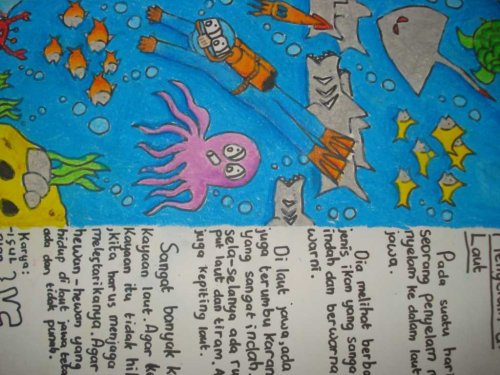 Laut
Pada suatu hari
seorang penyelam m
nyelam ke dalam laut
jawa.
Dia melihat berba
jenis ikan yang sanga
indah dan berwarna
warni.
Di laut jawa, ada
juga terumbu karan
yang sangat indah.
sela-selanya ada ru
put laut dan tiram. A
juga kepiting laut.
Sangat banyak k
kayaan laut. Agar k
kayaan itu tidak hil
kita harus menjaga
melestarikanya. Agar
hewan-hewan yang
hidup di laut jawa teta
ada dan tidak punah.
Karya: